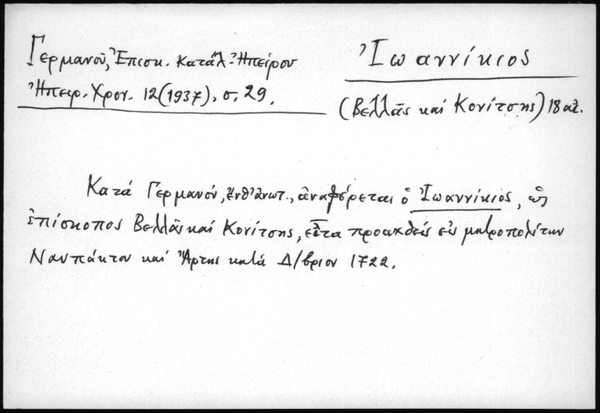 Γερμανοῦ, Ἐπισκ. κατάλ. Ἠπείρου
Ἠπειρ. Χρον. 12(1937), σ. 29.
Ἰωαννίκιος
(Βελλᾶς καί Κονίτσης) 18 αἰ.
Κατά Γερμανόν, ἔνθ' ἀνωτ., ἀναφέρεται ὁ Ἰωαννίκιος, ὡς
ἐπίσκοπος Βελλᾶς καί Κονίτσης, εἶτα προαχθείς εἰς μητροπολίτην
Ναυπάκτου καί Ἄρτης κατά Δ/βριον 1722.